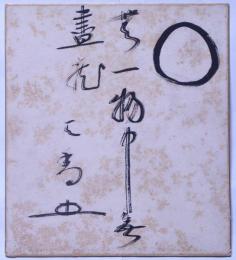 無一物中無
盡蔵